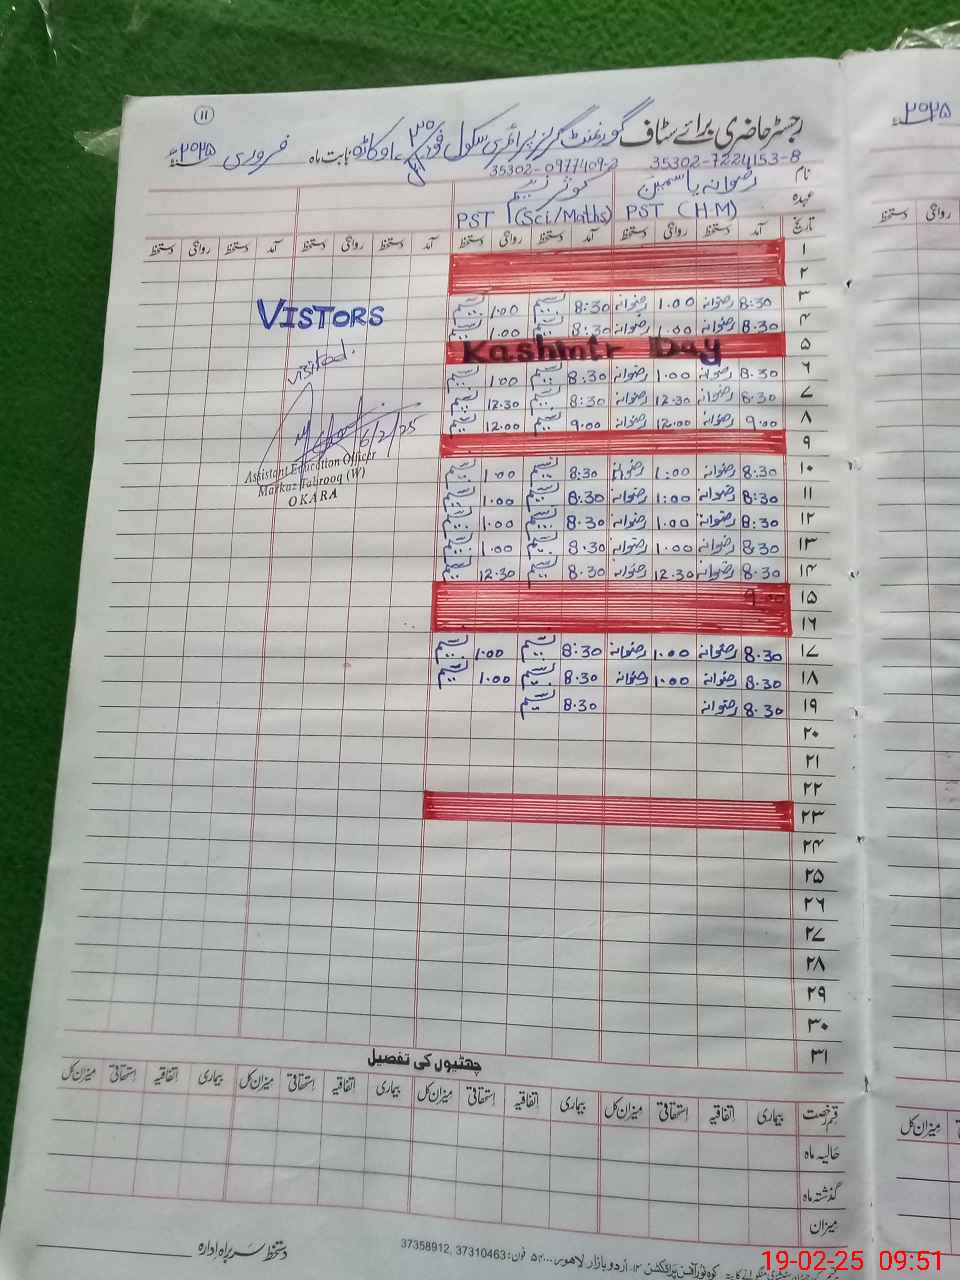 ۱۱
رجسٹر حاضری برائے سٹاف گورنمنٹ گرلز پرائمری سکول اوکاڑہ بابت ماہ فروری ۲۰۲۵ء
35302-7224153-8 35302-0977409-2
نام رضوانہ یاسمین کوثر نسیم
عہدہ PST (H.M) PST (Sci/Maths)
تاریخ آمد دستخط روانگی دستخط آمد دستخط روانگی دستخط آمد دستخط روانگی دستخط آمد دستخط روانگی دستخط
۱
۲
۳ 8:30 رضوانہ 1.00 رضوانہ 8:30 نسیم 1.00 نسیم
۴ 8.30 رضوانہ 1.00 رضوانہ 8:30 نسیم 1.00 نسیم
۵ Kashmir Day
۶ 8.30 رضوانہ 1.00 رضوانہ 8:30 نسیم 1.00 نسیم
۷ 8.30 رضوانہ 12.30 رضوانہ 8:30 نسیم 12.30 نسیم
۸ 9.00 رضوانہ 12.00 رضوانہ 9.00 نسیم 12.00 نسیم
۹
۱۰ 8:30 رضوانہ 1:00 رضوانہ 8:30 نسیم 1.00 نسیم
۱۱ 8:30 رضوانہ 1:00 رضوانہ 8:30 نسیم 1.00 نسیم
۱۲ 8:30 رضوانہ 1.00 رضوانہ 8.30 نسیم 1.00 نسیم
۱۳ 8.30 رضوانہ 1.00 رضوانہ 8.30 نسیم 1.00 نسیم
۱۴ 8.30 رضوانہ 12.30 رضوانہ 8.30 نسیم 12.30 نسیم
۱۵ 9.00
۱۶
۱۷ 8.30 رضوانہ 1.00 رضوانہ 8:30 نسیم 1.00 نسیم
۱۸ 8.30 رضوانہ 1.00 رضوانہ 8.30 نسیم 1.00 نسیم
۱۹ 8.30 رضوانہ 8.30 نسیم
۲۰
۲۱
۲۲
۲۳
۲۴
۲۵
۲۶
۲۷
۲۸
۲۹
۳۰
۳۱
VISTORS
visited.
6/2/25
Assistant Education Officer
Markaz Tabrooq (W)
OKARA
چھٹیوں کی تفصیل
قسم رخصت بیماری اتفاقیہ استحقاقی میزان کل بیماری اتفاقیہ استحقاقی میزان کل بیماری اتفاقیہ استحقاقی میزان کل بیماری اتفاقیہ استحقاقی میزان کل
حالیہ ماہ
گذشتہ ماہ
میزان
دستخط سربراہ ادارہ
اردو بازار لاہور فون: 37310463, 37358912
۲۰۲۵
روانگی دستخط
میزان کل
19-02-25 09:51